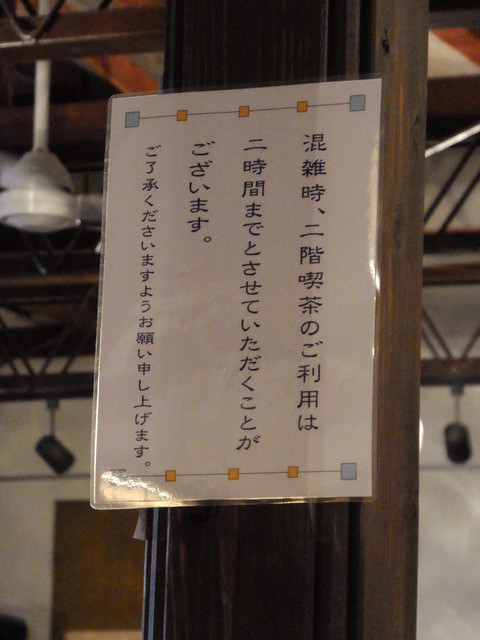 混雑時、二階喫茶のご利用は
二時間までとさせていただくことが
ございます。
ご了承くださいますようお願い申し上げます。